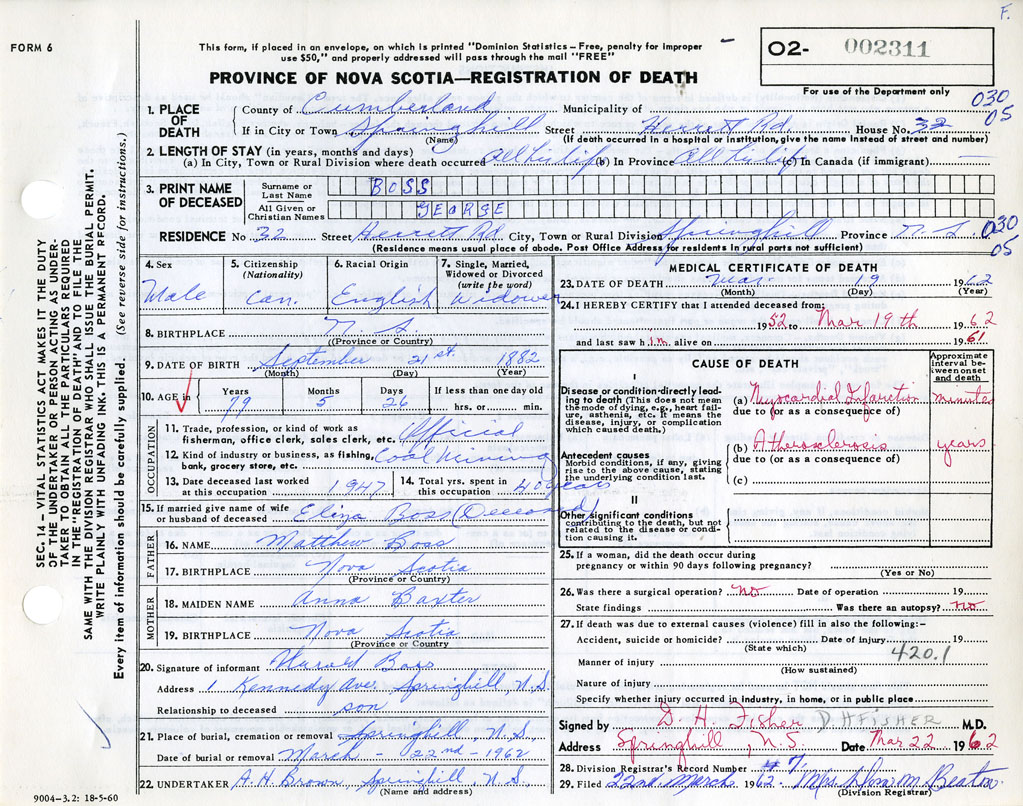 F.
FORM 6
This form, if placed in an envelope, on which is printed "Dominion Statistics – Free, penalty for improper
use $50," and properly addressed will pass through the mail "FREE"
PROVINCE OF NOVA SCOTIA—REGISTRATION OF DEATH
O2- 002311
For use of the Department only
030
05
1. PLACE OF DEATH
County of Cumberland Municipality of
If in City or Town Springhill Street Herrett Rd. House No. 32
(Name) (If death occurred in a hospital or institution, give the name instead of street and number)
2. LENGTH OF STAY (in years, months and days)
(a) In City, Town or Rural Division where death occurred all his life (b) In Province all his life (c) In Canada (if immigrant) —
3. PRINT NAME OF DECEASED
Surname or Last Name BOSS
All Given or Christian Names GEORGE
RESIDENCE No 32 Street Herrett Rd City, Town or Rural Division Springhill Province N.S
(Residence means usual place of abode. Post Office Address for residents in rural parts not sufficient)
030
05
4. Sex
Male
5. Citizenship
(Nationality)
Can.
6. Racial Origin
English
7. Single, Married,
Widowed or Divorced
(write the word)
Widower
8. BIRTHPLACE N S
(Province or Country)
9. DATE OF BIRTH September 21st. 1882
(Month) (Day) (Year)
10. AGE in
Years 79
Months 5
Days 26
If less than one day old
hrs. or min.
OCCUPATION
11. Trade, profession, or kind of work as
fisherman, office clerk, sales clerk, etc. Official
12. Kind of industry or business, as fishing,
bank, grocery store, etc. Coal Mining
13. Date deceased last worked
at this occupation 1947
14. Total yrs. spent in
this occupation 40 years
15. If married give name of wife
or husband of deceased Eliza Boss (Deceased)
FATHER
16. NAME Matthew Boss
17. BIRTHPLACE Nova Scotia
(Province or Country)
MOTHER
18. MAIDEN NAME Anna Baxter
19. BIRTHPLACE Nova Scotia
(Province or Country
20. Signature of informant Harold Boss
Address 1 Kennedy Ave, Springhill, N.S.
Relationship to deceased son
21. Place of burial, cremation or removal Springhill N.S.
Date of burial or removal March - 22nd - 1962
22. UNDERTAKER A.H. Brown Springhill, N.S.
(Name and address)
9004-3.2: 18-5-60
SEC. 14 – VITAL STATISTICS ACT MAKES IT THE DUTY
OF THE UNDERTAKER OR PERSON ACTING AS UNDER-
TAKER TO OBTAIN ALL THE PARTICULARS REQUIRED
IN THE "REGISTRATION OF DEATH" AND TO FILE THE
SAME WITH THE DIVISION REGISTRAR WHO SHALL ISSUE THE BURIAL PERMIT.
WRITE PLAINLY WITH UNFADING INK. THIS IS A PERMANENT RECORD.
Every item of information should be carefully supplied. (See reverse side for instructions.)
MEDICAL CERTIFICATE OF DEATH
23. DATE OF DEATH Mar. 19 1962
(Month) (Day) (Year)
24. I HEREBY CERTIFY that I attended deceased from:
1952 to Mar 19th 1962
and last saw him alive on 1961
CAUSE OF DEATH
Approximate
interval be-
tween onset
and death
I
Disease or condition directly lead-
ing to death (This does not mean
the mode of dying, e.g., heart fail-
ure, asthenia, etc. It means the
disease, injury, or complication
which caused death.)
(a) Myocardial Infarction minutes
due to (or as a consequence of)
Antecedent causes
Morbid conditions, if any, giving
rise to the above cause, stating
the underlying condition last.
(b) Atherosclerosis years
due to (or as a consequence of)
(c)
II
Other significant conditions
contributing to the death, but not
related to the disease or condi-
tion causing it.
25. If a woman, did the death occur during
pregnancy or within 90 days following pregnancy?
(Yes or No)
26. Was there a surgical operation? no Date of operation 19
State findings Was there an autopsy? no
27. If death was due to external causes (violence) fill in also the following:–
Accident, suicide or homicide? Date of injury 19
(State which)
420.1
Manner of injury
(How sustained)
Nature of injury
Specify whether injury occurred in industry, in home, or in public place
Signed by D. H. Fisher D H FISHER M.D.
Address Springhill, N.S. Date Mar 22 1962
28. Division Registrar's Record Number #7
29. Filed 22nd March 1962 Mrs Don M. Beaton
(Division Registrar)